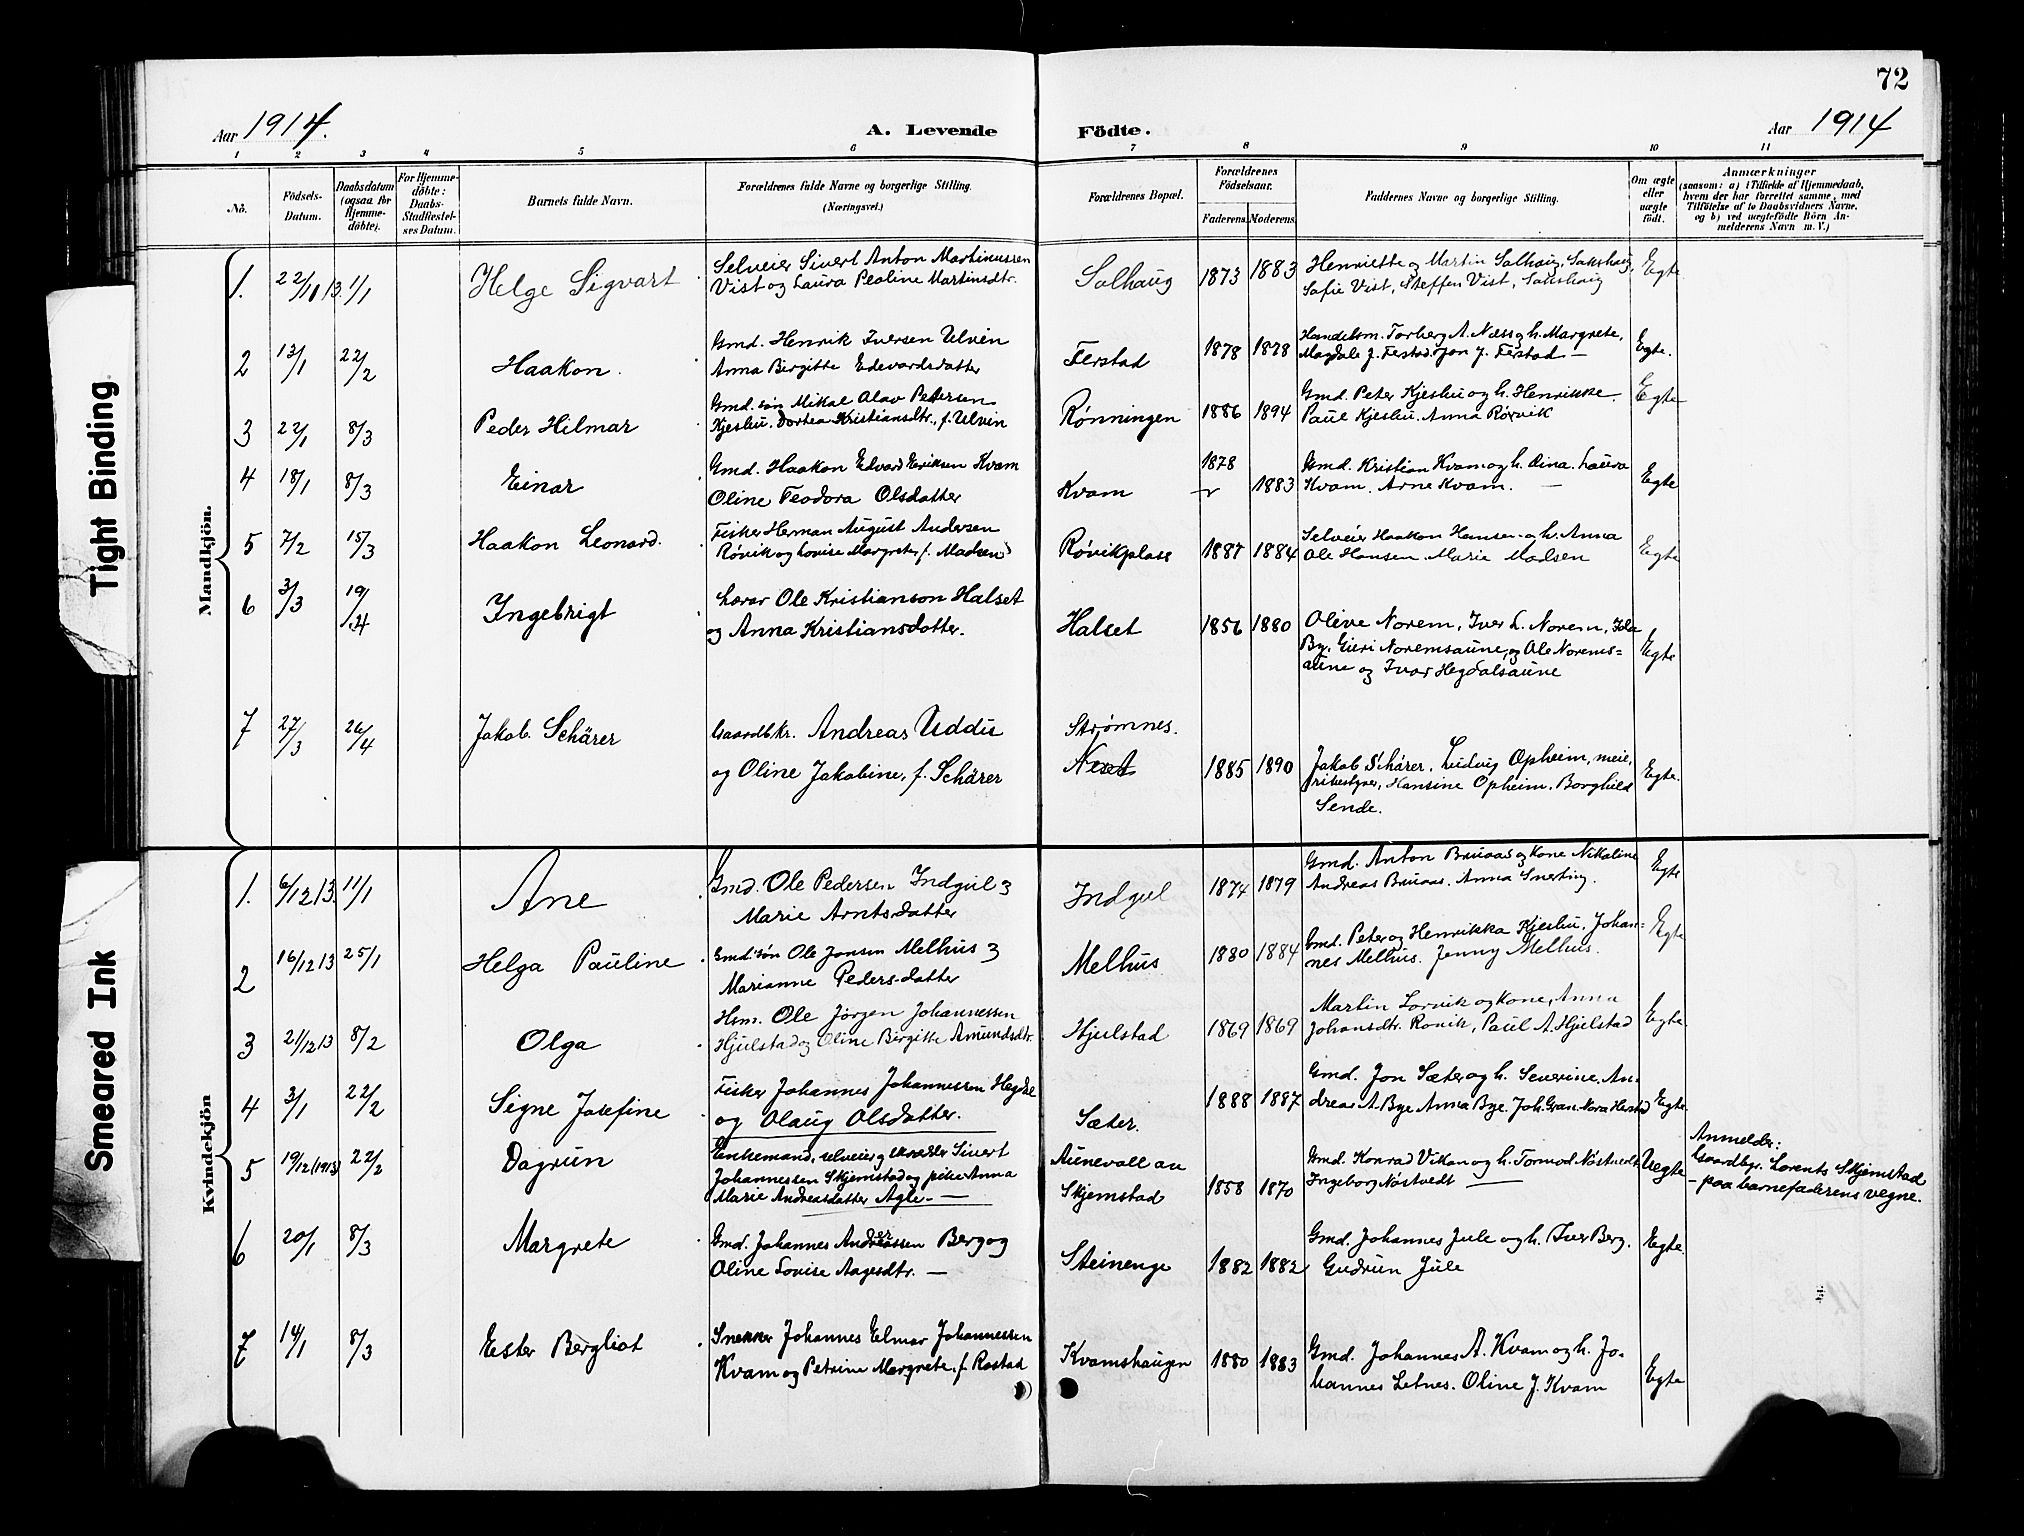 72
Aar 1914.
A. Levende Födte.
Aar 1914
1 2 3 4 5 6 7 8 9 10 11
No.
Födsels-
Datum.
Daabsdatum
(ogsaa for
Hjemme-
döbte).
For Hjemme-
döbte:
Daabs-
Stadfæstel-
ses Datum.
Barnets fulde Navn.
Forældrenes fulde Navne og borgerlige Stilling.
(Næringsvei.)
Forældrenes Bopæl.
Forældrenes
Födselsaar.
Faderens. Moderens.
Faddernes Navne og borgerlige Stilling.
Om ægte
eller
uægte
født.
Anmærkninger
(saasom: a) i Tilfælde af Hjemmedaab,
hvem der har forrettet samme, med
Tilföielse af to Daabsvidners Navne,
og b) ved uægtefödte Börn An-
melderens Navn m. V.)
Mandkjön.
1. 22/11 13. 1/1 Helge Sigvart
Selveier Sivert Anton Martinussen
Vist og Laura Pealine Martinsdtr.
Salhaug 1873 1883
Henriette og Martin Salhaug, Sakshaug,
Sofie Vist, Steffen Vist, Sakshaug
Egte
2 13/1 22/2 Haakon.
Gmd. Henrik Iversen Ulvin
Anna Birgitte Edevardsdatter
Ferstad 1878 1878
Handelsm. Torberg A. Næss og h. Margrete,
Magdale J. Ferstad. Jon J. Ferstad —
Egte.
3 22/1 8/3 Peder Hilmar
Gmd. søn Mikal Olav Petersen
Kjeshu. Dortea Kristiansdtr., f. Ulvin
Rønningen 1886 1894
Gmd. Peter Kjeshu og h. Henrikke
Paul Kjeshu. Anna Rørvik
Egte
4 18/1 8/3 Einar
Gmd. Haakon Edvard Eriksen Kvam
Oline Teodora Olsdatter
Kvam 1878 1883
Gmd. Kristian Kvam og h. Lina. Laura
Kvam. Arne Kvam. —
Egte
5 7/2 15/3 Haakon Leonard.
Fisker Herman August Andersen
Røvik og Lovise Margrete, f. Madsen
Røvikplass 1887 1884
Selveier Haakon Hansen og h. Anna
Ole Hansen. Marie Madsen
Egte
6 3/3 19/4 Ingebrigt
Lærer Ole Kristianson Halset
og Anna Kristiansdotter.
Halset 1856 1880
Olive Norem, Iver L. Norem, Ida
By. Guri Noremsaune, og Ole Norems=
aune og Ivar Hegdalsaune
Egte
7 27/3 26/4 Jakob Schärer
Gaardbkr. Andreas Uddu
og Oline Jakobine, f. Schärer
Strømnes.
Neset
1885 1890
Jakob Schärer, Ludvig Opheim, meie,
ribestyrer, Hansine Opheim. Borghild
Sende.
Egte.
Kvindekjön
1. 6/12 13. 11/1 Ane
Gmd. Ole Pedersen Indgul &
Marie Arntsdatter
Indgul 1874 1879
Gmd. Anton Bruaas og Kone Nikoline
Andreas Bruaas. Anna Snerting.
Egte
2 16/12 13 25/1 Helga Pauline
Gmd. søn Ole Jonsen Melhus &
Marianne Pedersdatter
Melhus 1880 1884
Gmd. Peter og Henrikka Kjeshu. Johan=
nes Melhus. Jenny Melhus.
Egte
3 21/12 13 8/2 Olga
Hsm. Ole Jørgen Johannessen
Hjulstad og Oline Birgitte Amundsdtr.
Hjulstad 1869 1869
Martin Lorvik og Kone, Anna
Johansdtr. Rovik, Paul A. Hjulstad
Egte
4 3/1 22/2 Signe Josefine
Fisker Johannes Johannessen Hegdal
og Olaug Olsdatter.
Sæter. 1888 1887
Gmd. Jon Sæter og h. Severine, An-
dreas A. Bye Anna Bye. Joh. Gran. Nora Herstad
Egte
5 19/12 (1913) 22/2 Dagrun
Enkemand, selveier og skræder Sivert
Johannessen Skjemstad og pike Anna
Marie Andreasdatter Agle. —
Aunevald av
Skjemstad 1858 1870
Gmd. Konrad Vikan og h. Tormod Nøstvedt
Ingeborg Nøstvedt —
Uegte
Anmelder:
Gaardbr. Lorents Skjemstad
- paa barnefaderens vegne.
6 20/1 8/3 Margrete
Gmd. Johannes Andreassen Berg og
Oline Lovise Aagesdtr. —
Steinenge 1882 1882
Gmd. Johannes Jule og h. Iver Berg.
Gudrun Jule
Egte.
7 14/1 8/3 Ester Bergliot
Snekker Johannes Elmar Johannessen
Kvam og Petrine Margrete, f. Rostad
Kvamshaugen 1880 1883
Gmd. Johannes A. Kvam og h. Jo-
hannes Letnes. Oline J. Kvam
Egte
Tight Binding
Smeared Ink